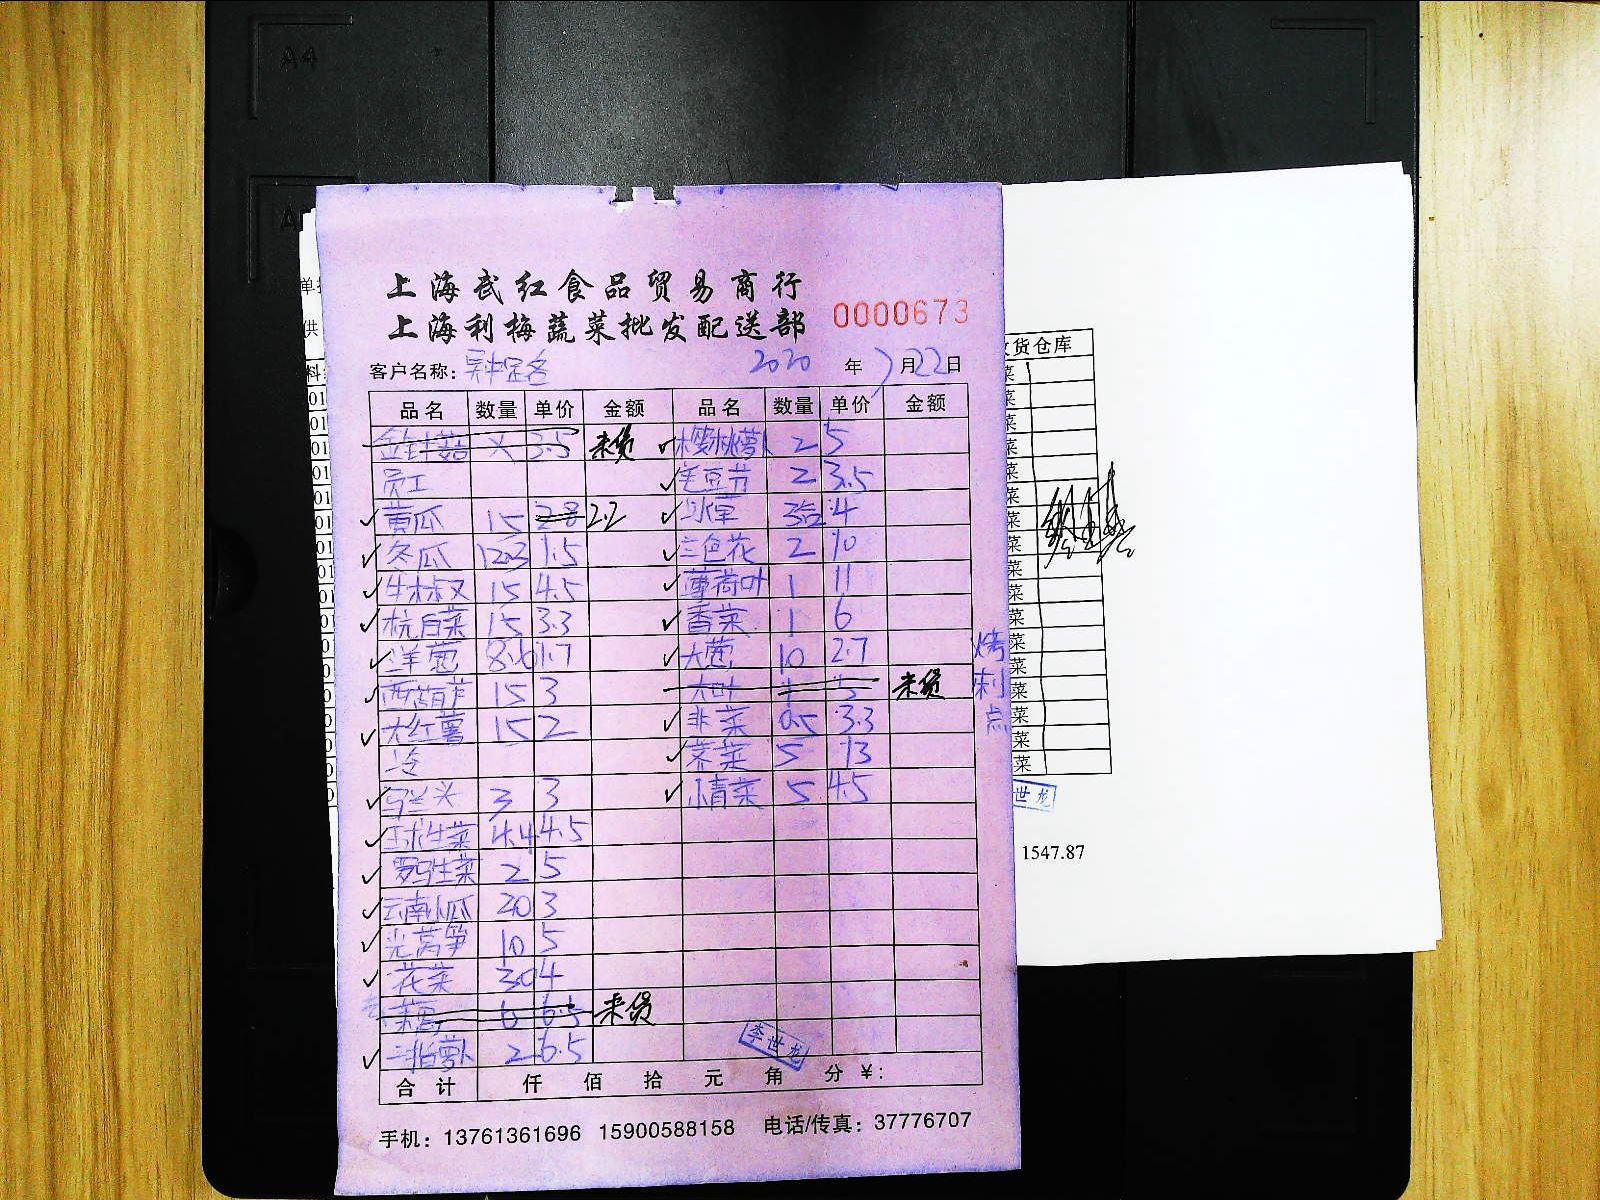 上海武红食品贸易商行
上海利梅蔬菜批发配送部
0000673
客户名称: 2020 年 7月22日
品名 数量 单价 金额 品名 数量 单价 金额
金针菇 3.5 未货 樱桃萝卜 2 5
员工 毛豆节 2 3.5
黄瓜 15 2.8 2.2 冰草 3盒 4
冬瓜 12.3 1.5 三色花 2 10
牛杯叔 15 4.5 薄荷叶 1 11
杭白菜 15 3.3 香菜 1 6
洋葱 8.6 1.7 大葱 10 2.7
西葫芦 15 3 大叶 未货
大红薯 15 2 韭菜 0.5 3.3
冷 荠菜 5 13
马兰头 3 3 小青菜 5 4.5
球生菜 4.4 4.5
罗马生菜 2 5
云南小瓜 20 3
光莴笋 10 5
花菜 30 4
茼蒿 6 6.5 未货
2 6.5
烤
刺
点
李世龙
合计 仟 佰 拾 元 角 分 ¥:
手机: 13761361696 15900588158 电话/传真: 37776707
货仓库
菜
菜
菜
菜
菜
菜
菜
菜
菜
菜
菜
菜
菜
菜
菜
菜
菜
世龙
1547.87
单
供
料
01
01
01
01
01
01
01
01
01
01